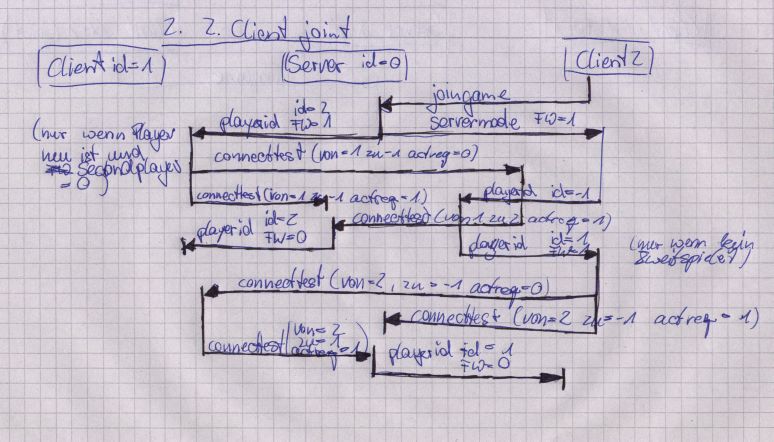 2. 2. Client joint
Client id=1
Server id=0
Client 2
joingame
playerid id=2 FW=1
servermode FW=1
(nur wenn Player
neu ist und
Secondplayer
= 0)
connecttest (von=1 zu-1 actreq=0)
connecttest (von=1 zu-1 actreq=1)
playerid id=-1
connecttest (von 1 zu 2 actreq=1)
playerid id=2 FW=0
playerid id=1 FW=1
(nur wenn kein
Zweitspieler)
connecttest (von=2, zu=-1 actreq=0)
connecttest (von=2 zu=-1 actreq=1)
connecttest (von=2 zu=1 actreq=1)
playerid id=1 FW=0